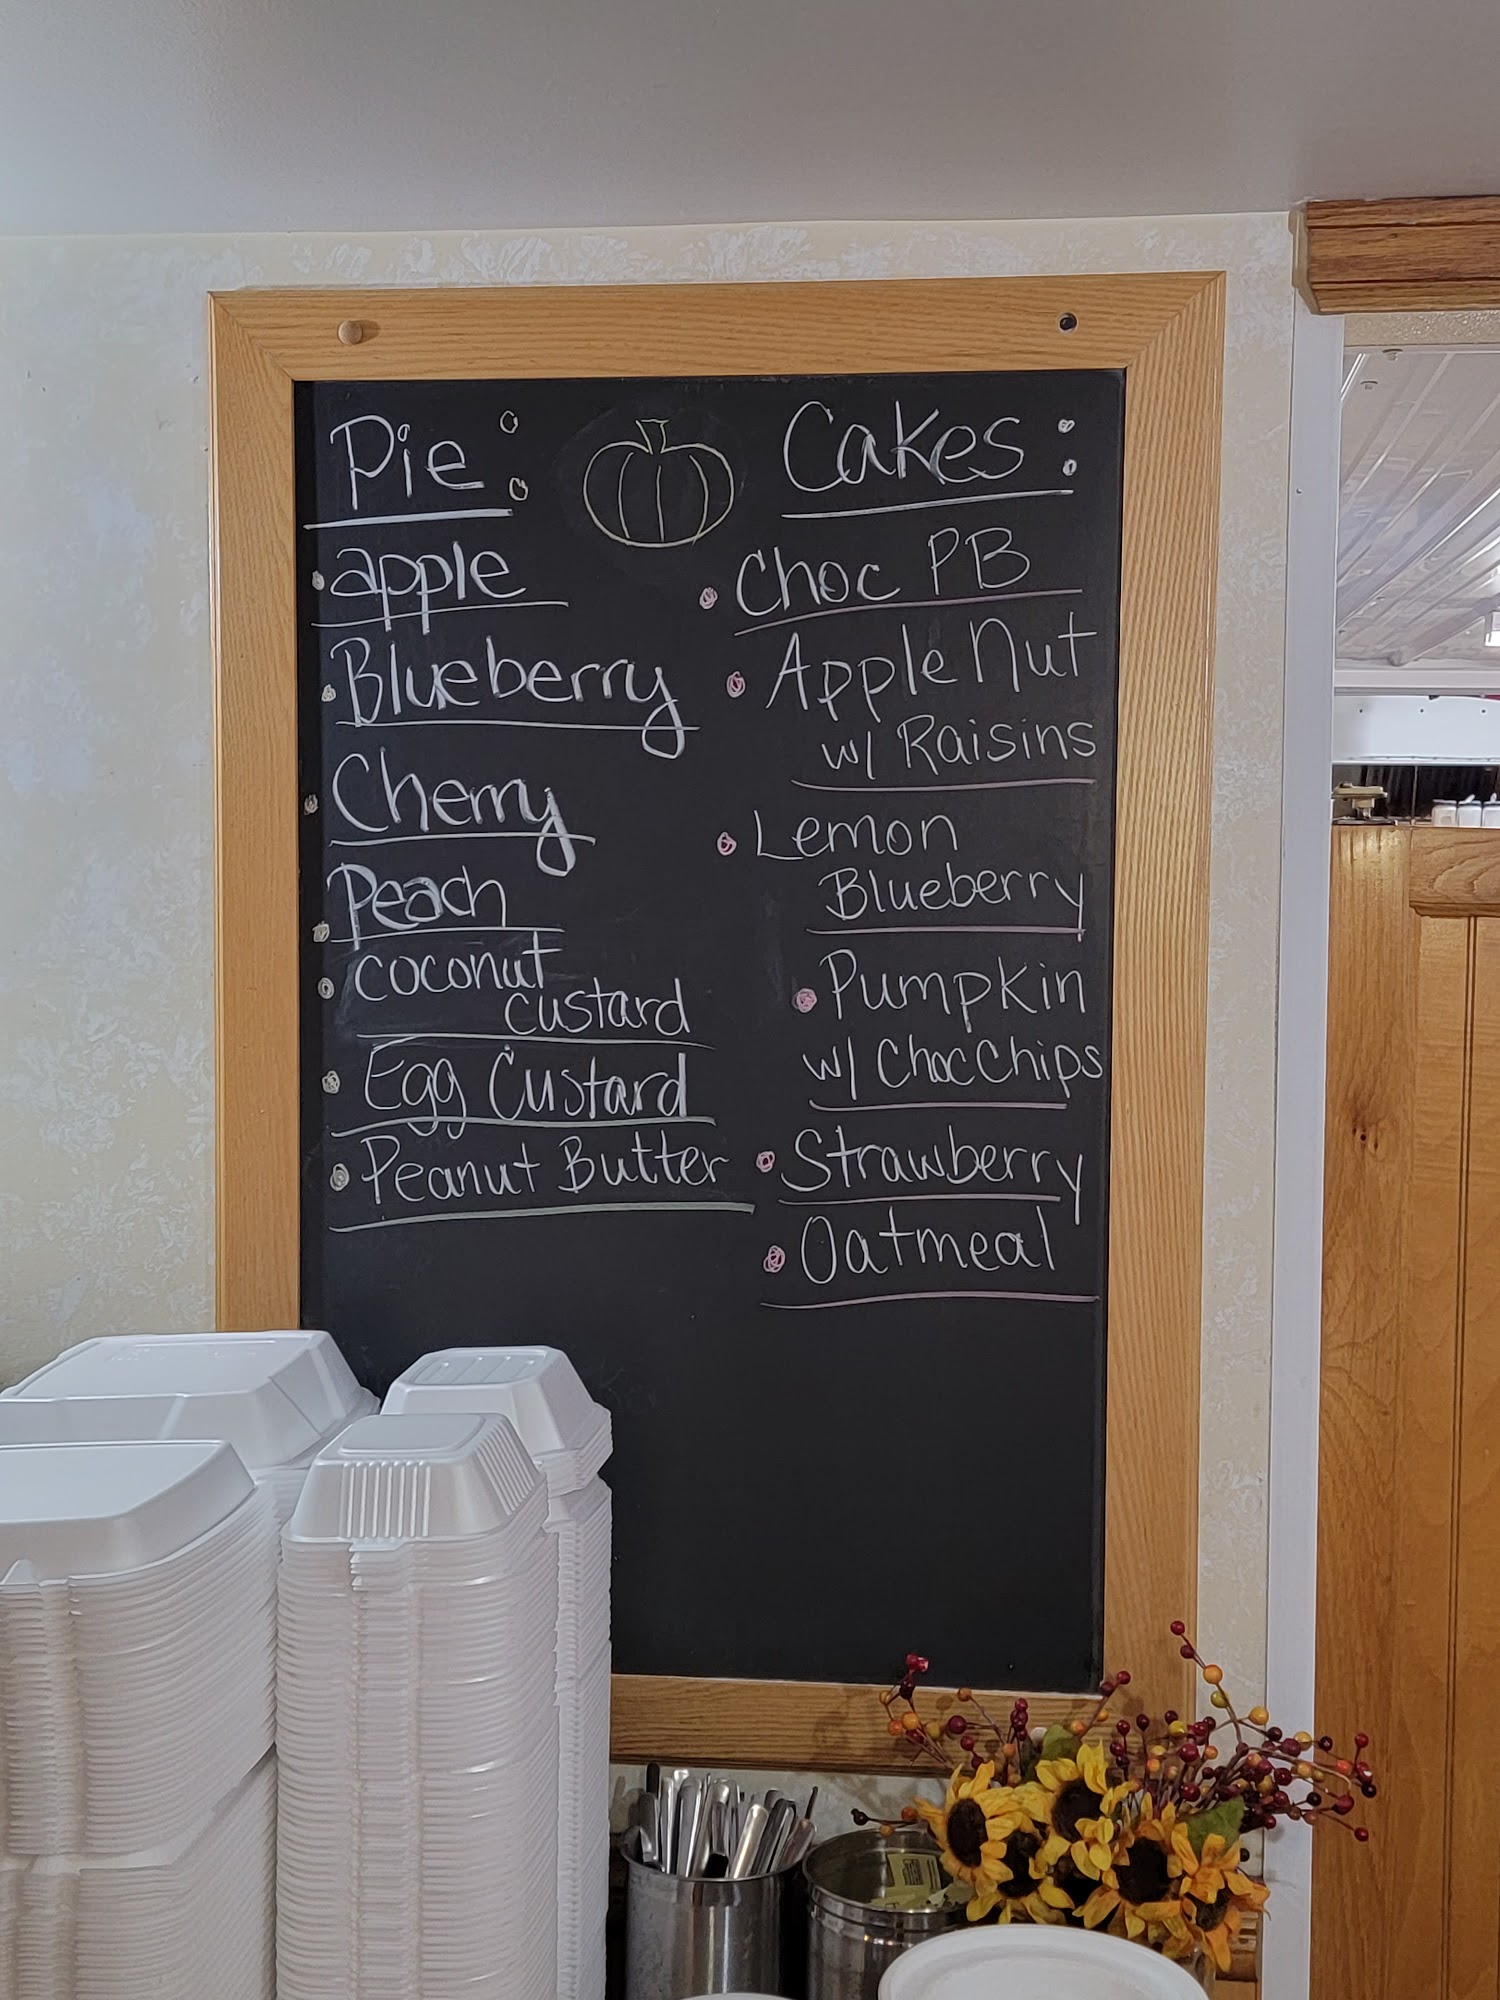 Pie:
apple
Blueberry
Cherry
Peach
coconut
custard
Egg Custard
Peanut Butter
Cakes:
Choc PB
Apple Nut
w/ Raisins
Lemon
Blueberry
Pumpkin
w/ Choc Chips
Strawberry
Oatmeal